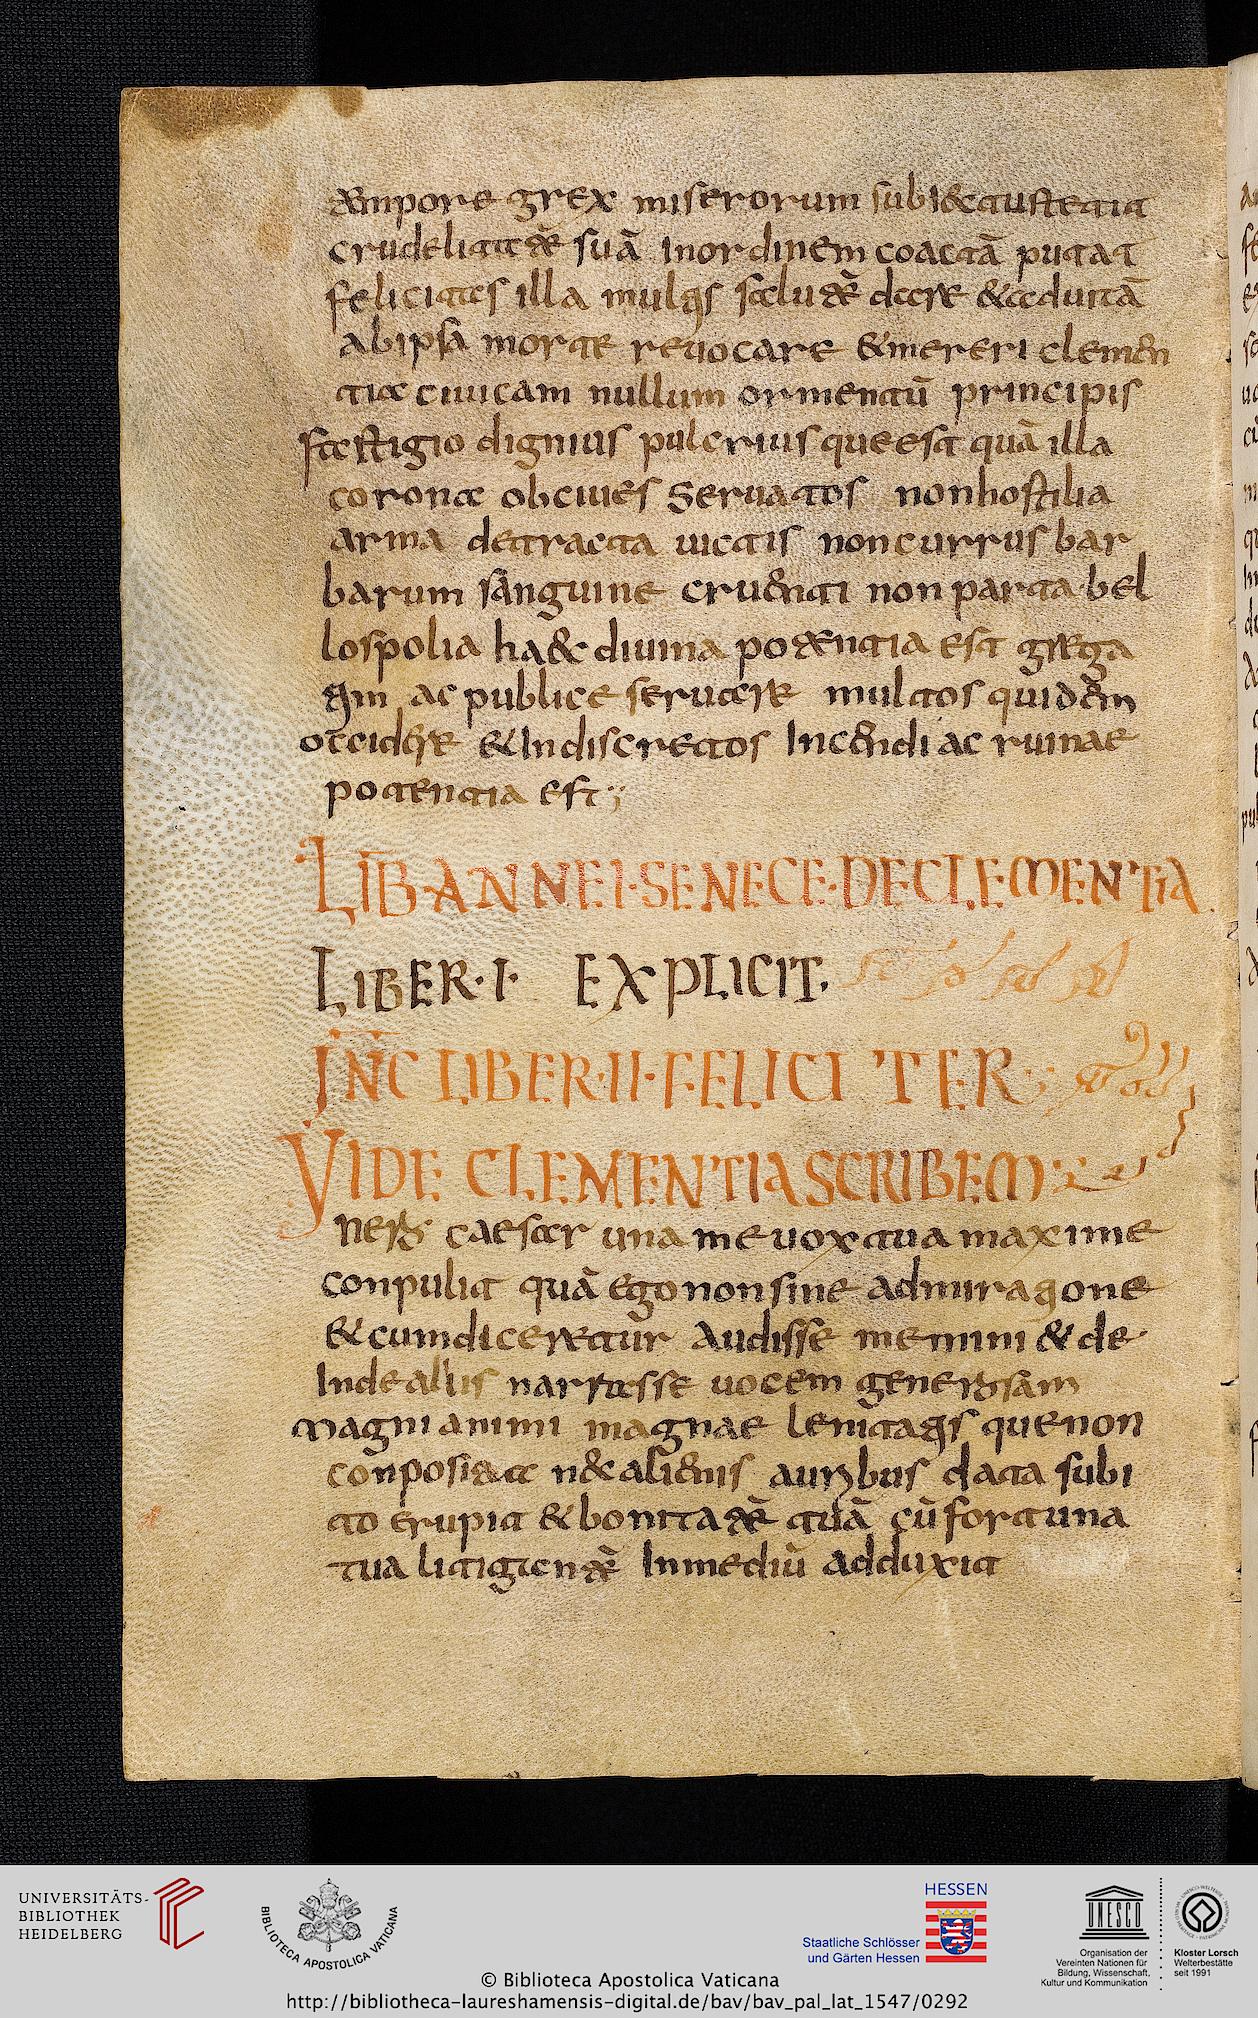 tempore grex miserorum subidequstetit
crudelitatẽ suã inordinem coactã putat
felicitas illa multis salutẽ dare & aduitã
abipsa morte reuocare & mereri clemen
tia ciuicam nullum ormentũ principis
fastigio dignius pulcrius que est quã illa
corona obciues seruatos non hostilia
arma detracta uictis non currus bar
barum sanguine cruenti non parta bel
lo spolia haec diuina potentia est grega
tim ac publice seruare multos quidem
occidere & Indiscretos Incendi ac ruinae
potentia est;
LIB·ANNEI·SENECE·DECLEMENTIA
LIBER·I· EXPLICIT.
INC LIBER·II·FELICITER
VIDE CLEMENTIA SCRIBEM
Nero caesar una me uox tua maxime
conpulit quã ego non sine admiratione
& cum diceretur audisse memini & de
Inde aliis narrasse uocem generosam
magni animi magnae lenitatis que non
conposita nec alienis auribus data subi
to erupit & bonitatẽ tuã cũ fortuna
tua litigantẽ In mediũ adduxit
UNIVERSITÄTS-
BIBLIOTHEK
HEIDELBERG
BIBLIOTECA APOSTOLICA VATICANA
HESSEN
Staatliche Schlösser
und Gärten Hessen
UNESCO
Organisation der
Vereinten Nationen für
Bildung, Wissenschaft,
Kultur und Kommunikation
Kloster Lorsch
Welterbestätte
seit 1991
© Biblioteca Apostolica Vaticana
http://bibliotheca-laureshamensis-digital.de/bav/bav_pal_lat_1547/0292